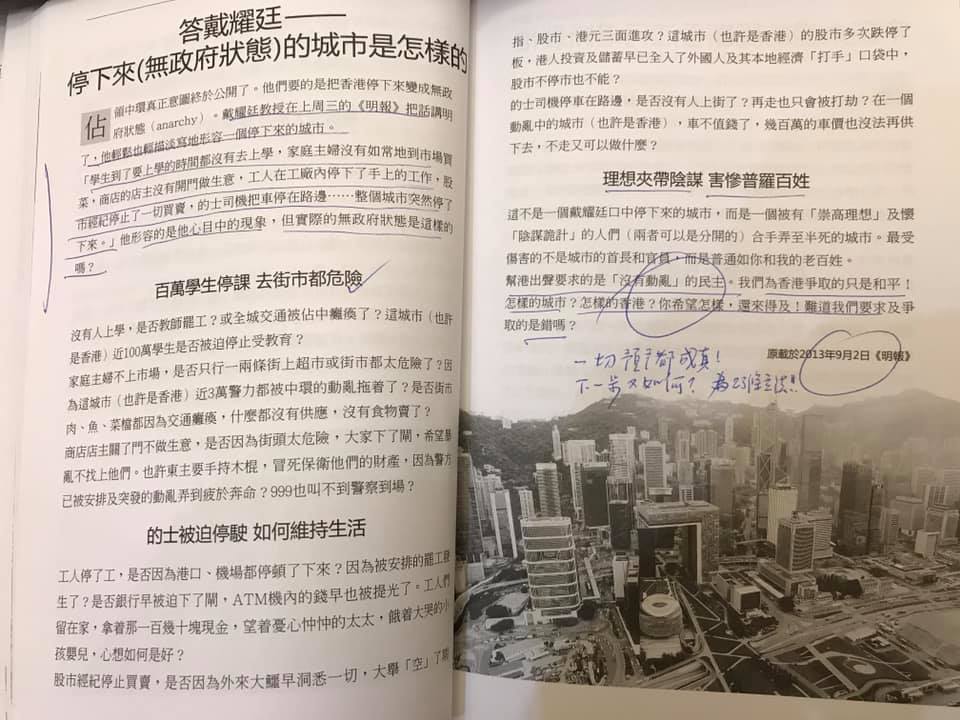 答戴耀廷——
停下來(無政府狀態)的城市是怎樣的
佔領中環真正意圖終於公開了。他們要的是把香港停下來變成無政
府狀態(anarchy)。戴耀廷教授在上周三的《明報》把話講明
了,他輕鬆也輕描淡寫地形容一個停下來的城市。
「學生到了要上學的時間都沒有去上學,家庭主婦沒有如常地到市場買
菜,商店的店主沒有開門做生意,工人在工廠內停下了手上的工作,股
市經紀停止了一切買賣,的士司機把車停在路邊……整個城市突然停了
下來。」他形容的是他心目中的現象,但實際的無政府狀態是這樣的
嗎?
百萬學生停課 去街市都危險
沒有人上學,是否教師罷工?或全城交通被佔中癱瘓了?這城市(也許
是香港)近100萬學生是否被迫停止受教育?
家庭主婦不上市場,是否只行一兩條街上超市或街市都太危險了?因
為這城市(也許是香港)近3萬警力都被中環的動亂拖着了?是否街市
肉、魚、菜檔都因為交通癱瘓,什麼都沒有供應,沒有食物賣了?
商店店主關了門不做生意,是否因為街頭太危險,大家下了閘,希望暴
亂不找上他們。也許東主要手持木棍,冒死保衛他們的財產,因為警方
已被安排及突發的動亂弄到疲於奔命?999也叫不到警察到場?
的士被迫停駛 如何維持生活
工人停了工,是否因為港口、機場都停頓了下來?因為被安排的罷工發
生了?是否銀行早被迫下了閘,ATM機內的錢早也被提光了。工人們
留在家,拿着那一百幾十塊現金,望着憂心忡忡的太太,餓着大哭的小
孩嬰兒,心想如何是好?
股市經紀停止買賣,是否因為外來大鱷早洞悉一切,大舉「空」了期
指、股市、港元三面進攻?這城市(也許是香港)的股市多次跌停了
板,港人投資及儲蓄早已全入了外國人及其本地經濟「打手」口袋中,
股市不停市也不能?
的士司機停車在路邊,是否沒有人上街了?再走也只會被打劫?在一個
動亂中的城市(也許是香港),車不值錢了,幾百萬的車價也沒法再供
下去,不走又可以做什麼?
理想夾帶陰謀 害慘普羅百姓
這不是一個戴耀廷口中停下來的城市,而是一個被有「崇高理想」及懷
「陰謀詭計」的人們(兩者可以是分開的)合手弄至半死的城市。最受
傷害的不是城市的首長和官員,而是普通如你和我的老百姓。
幫港出聲要求的是「沒有動亂」的民主。我們為香港爭取的只是和平!
怎樣的城市?怎樣的香港?你希望怎樣,還來得及!難道我們要求及爭
取的是錯嗎?
原載於2013年9月2日《明報》
一切預言都成真!
下一步又如何?為23條立法!!